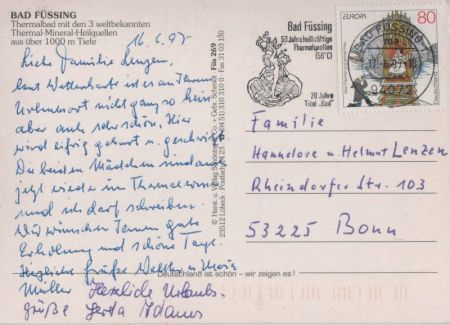 BAD FÜSSING
Thermalbad mit den 3 weltbekannten
Thermal-Mineral-Heilquellen
aus über 1000 m Tiefe
16.6.97
Liebe Familie Lenzen,
laut Wetterkarte ist es an Ihrem
Urlaubsort nicht ganz so heiss
aber auch sehr schön. Hier
wird eifrig gekurt u. geschwitzt
Die beiden Mädchen sind
jetzt wieder im Thermalwasser
und ich darf schreiben.
Wir wünschen Ihnen gute
Erholung und schöne Tage.
Herzliche Grüße Walter u. Maria
Müller Herzliche Urlaubs-
grüße Gerta Adams
Füs 269
23512 Lübeck · Postfach
Bad Füssing
50 Jahre heilkräftige
Thermalquellen
(56°C)
20 Jahre
Titel „Bad"
EUROPA
80
Deutschland
BAD FÜSSING
17.6.97
94072
Familie
Hannelore u. Helmut Lenzen
Rheindorfer Str. 103
53225 Bonn
Deutschland ist schön – wir zeigen es !